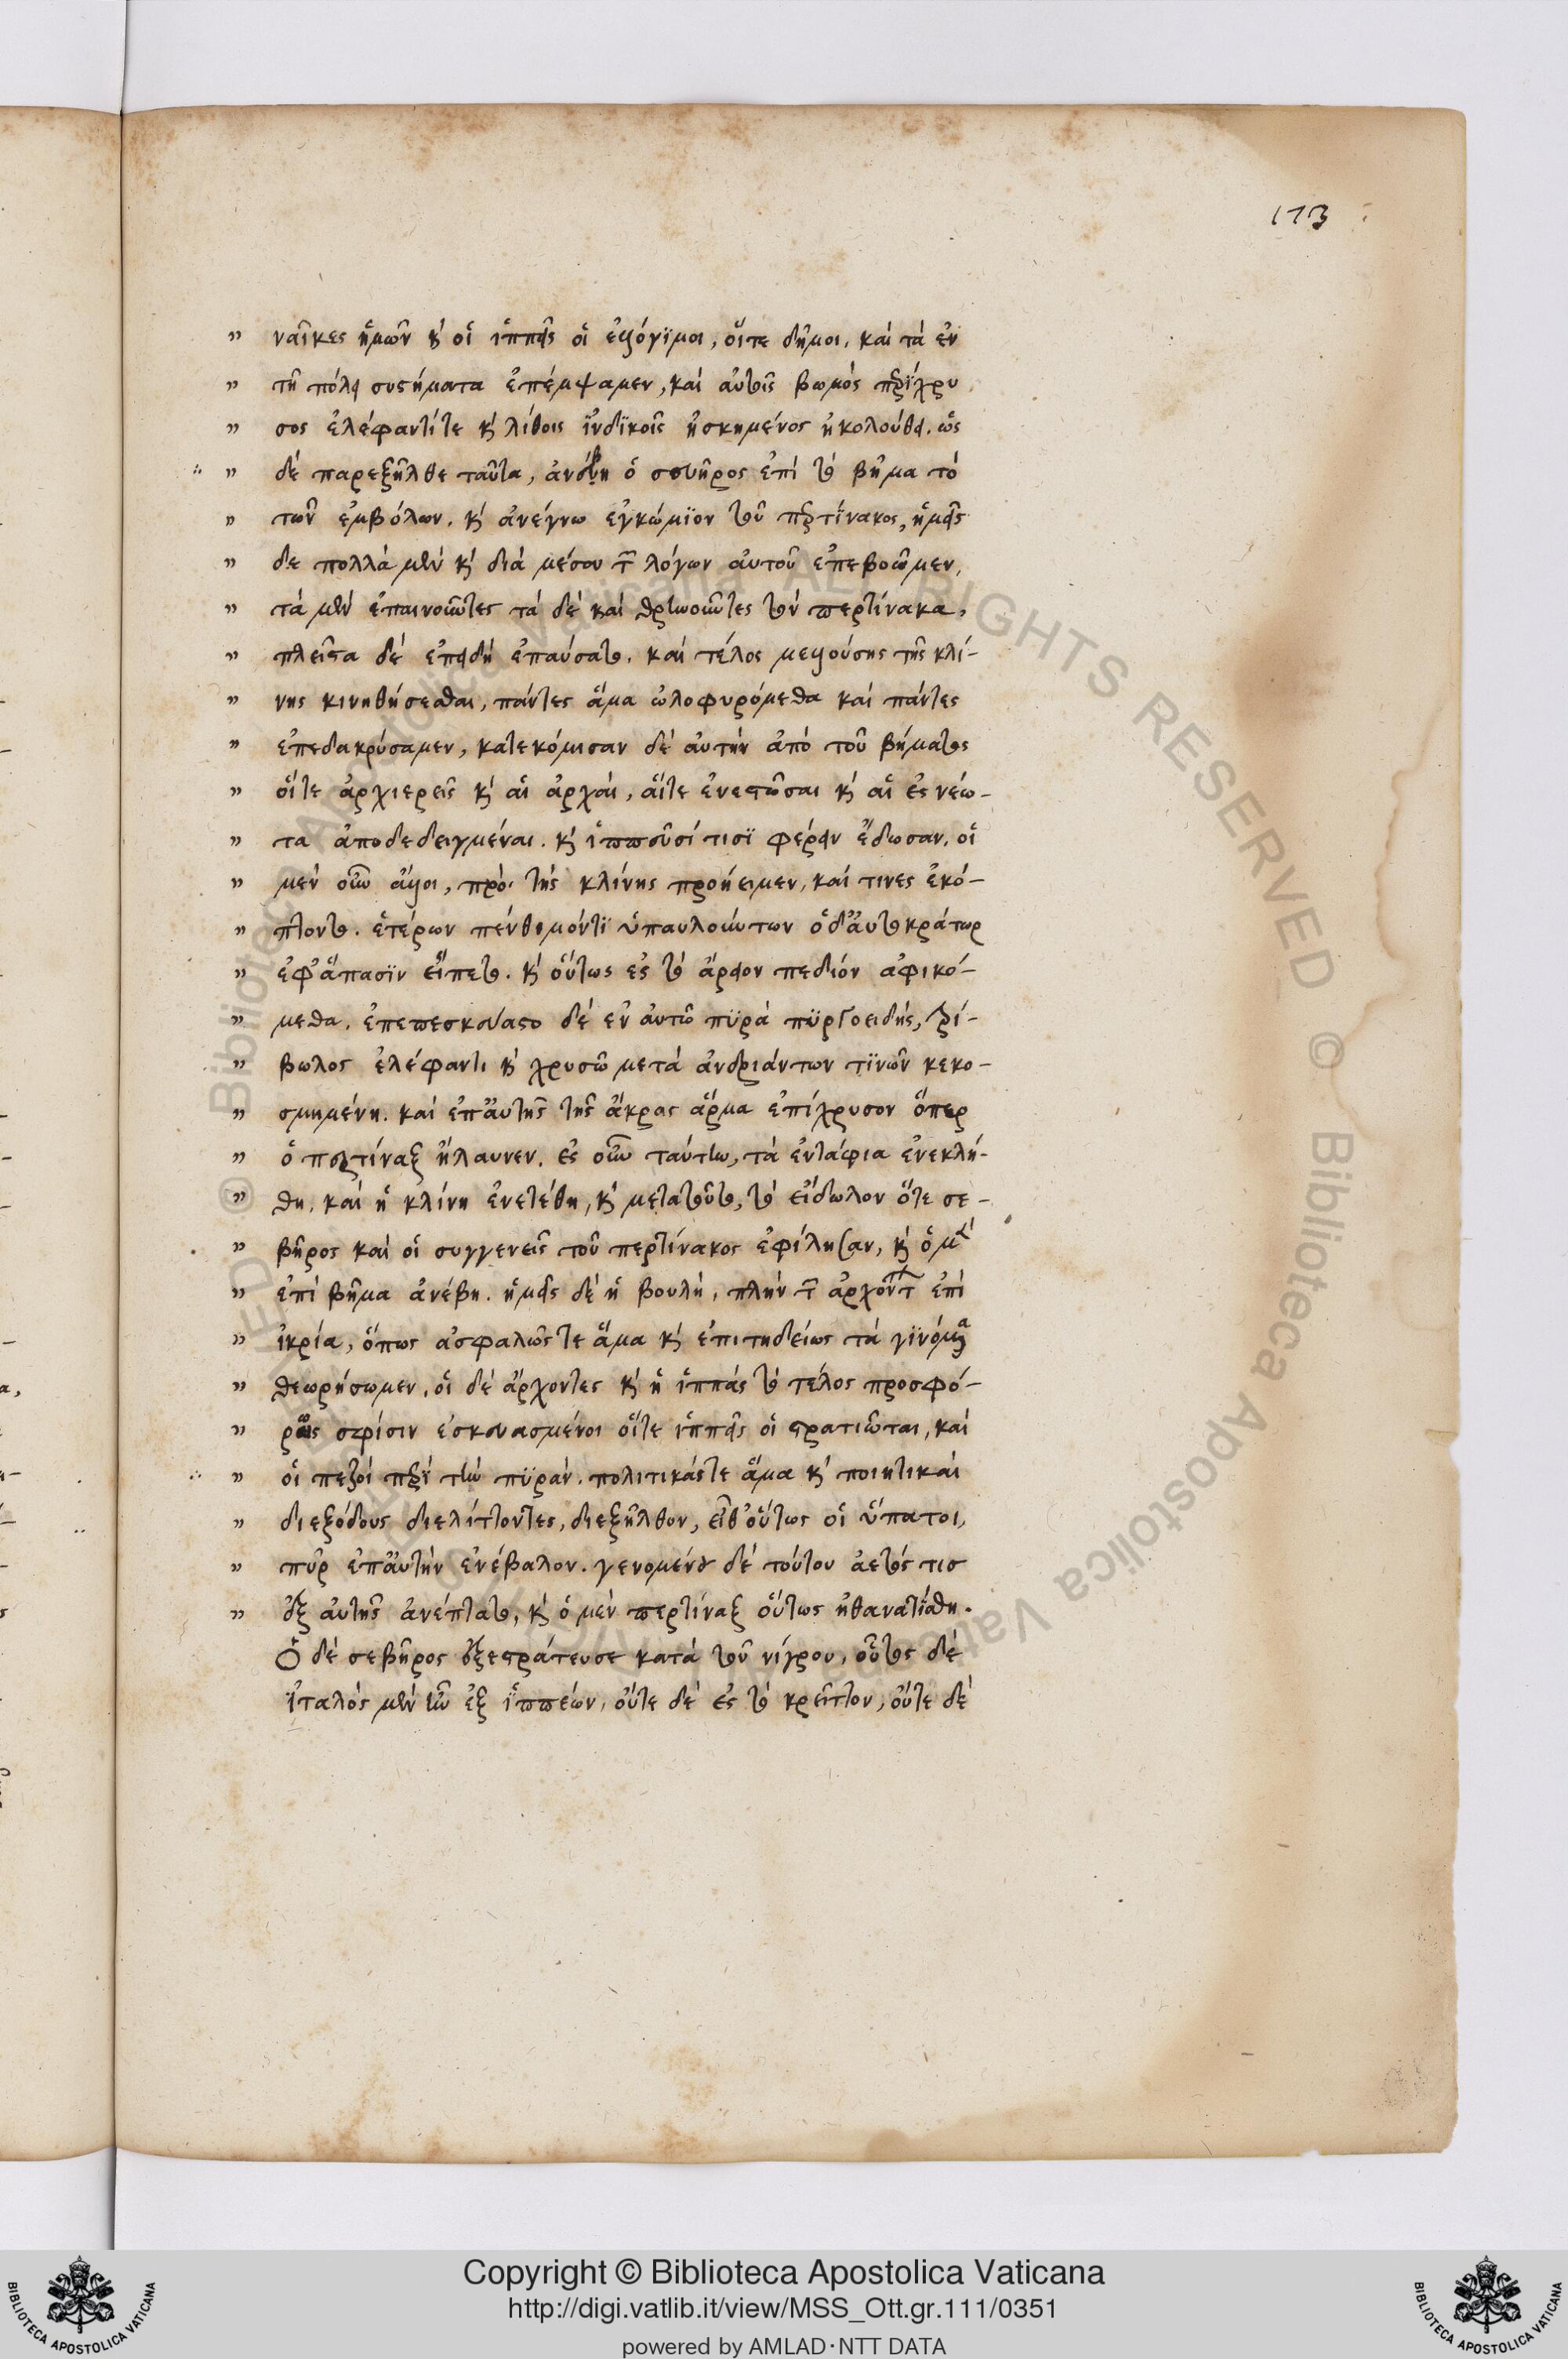 173
” ναῖκες ἡμῶν κ οἱ ἱππεῖς οἱ ἐλλόγϊμοι, οἵτε δῆμοι. καὶ τὰ ἐν
” τῆ πόλει συστήματα ἐπέμψαμεν, καὶ αὐτοῖς βωμὸς περΐχρυ
” σος ἐλέφαντίτε κ λίθοις ἰνδϊκοῖς ἠσκημένος ἠκολούθει. ὡς
” δὲ παρεξῆλθε ταῦτα, ὁ σευῆρος ἐπὶ τὸ βῆμα τὸ
” τῶν ἐμβόλων. κ ἀνέγνω ἐγκώμϊον τοῦ περτίνακος, ἡμεῖς
” δε πολλὰ μὲν κ διὰ μέσου τ λόγων αὐτοῦ ἐπεβοῶμεν,
” τὰ μὲν ἐπαινοῦντες τὰ δὲ καὶ θρηνοῦντες τὸν περτίνακα,
” πλεῖστα δὲ ἐπειδὴ ἐπαύσατο. καὶ τέλος μελλούσης τῆς κλί-
” νης κινηθήσεσθαι, πάντες ἅμα ὠλοφυρόμεθα καὶ πάντες
” ἐπεδακρύσαμεν, κατεκόμισαν δὲ αὐτὴν ἀπὸ τοῦ βήματος
” οἵτε ἀρχιερεῖς κ αἱ ἀρχαὶ, αἵτε ἐνεστῶσαι κ αἱ ἐς νέω-
” τα ἀποδεδειγμέναι. κ ἱππεῦσί τισϊ φέρειν ἔδωσαν. οἱ
” μὲν οὖν ἄλλοι, πρὸ τῆς κλίνης προήειμεν, καί τινες ἐκό-
” πτοντο. ἑτέρων πένθιμόντϊ ὑπαυλούντων ὁδ’αὐτοκράτωρ
” ἐφ’ἅπασϊν εἵπετο. κ οὕτως ἐς τὸ ἄρειον πεδίον ἀφικό-
” μεθα. ἐπεπεσκεύαστο δὲ ἐν αὐτῶ πϋρὰ πϋργοειδὴς, τρί-
” βωλος ἐλέφαντι κ χρυσῶ μετὰ ἀνδριάντων τϊνῶν κεκο-
” σμημένη. καὶ ἐπ’αὐτῆς τῆς ἄκρας ἅρμα ἐπίχρυσον ὅπερ
” ὁ περτίναξ ἤλαυνεν. ἐς οὖν ταύτην, τὰ ἐντάφια ἐνεκλή-
” θη. καὶ ἡ κλίνη ἐνετέθη, κ μετατοῦτο, τὸ εἴδωλον ὅτε σε-
” βῆρος καὶ οἱ συγγενεῖς τοῦ περτίνακος ἐφίλησαν, κ ὁ μὲ
” ἐπὶ βῆμα ἀνέβη. ἡμεῖς δὲ ἡ βουλὴ, πλὴν τ ἀρχόντ ἐπὶ
” ἰκρία, ὅπως ἀσφαλῶς τε ἅμα κ ἐπιτηδείως τὰ γϊνόμενα
” θεωρήσωμεν. οἱ δὲ ἄρχοντες κ ἡ ἱππὰς τὸ τέλος προσφό-
” ρως σφίσιν ἐσκευασμένοι οἵτε ἱππεῖς οἱ στρατιῶται, καὶ
” οἱ πεζοὶ περὶ τὴν πϋρὰν. πολιτικάςτε ἅμα κ ποιητικὰι
” διεξόδους διελίττοντες, διεξῆλθον, εἶθ’οὕτως οἱ ὕπατοι,
” πῦρ ἐπ’αὐτὴν ἐνέβαλον. γενομένου δὲ τούτου ἀετός τισ
” ἐξ αὐτῆς ἀνέπτατο, κ ὁ μὲν περτίναξ οὕτως ἠθανατίσθη.
Ὁ δὲ σεβῆρος ἐξεστράτευσε κατὰ τοῦ νίγρου, οὗτος δὲ
ἰταλὸς μὲν ἦν ἐξ ἱππέων, οὔτε δὲ ἐς τὸ κρεῖττον, οὔτε δὲ
Copyright © Biblioteca Apostolica Vaticana
http://digi.vatlib.it/view/MSS_Ott.gr.111/0351
powered by AMLAD·NTT DATA